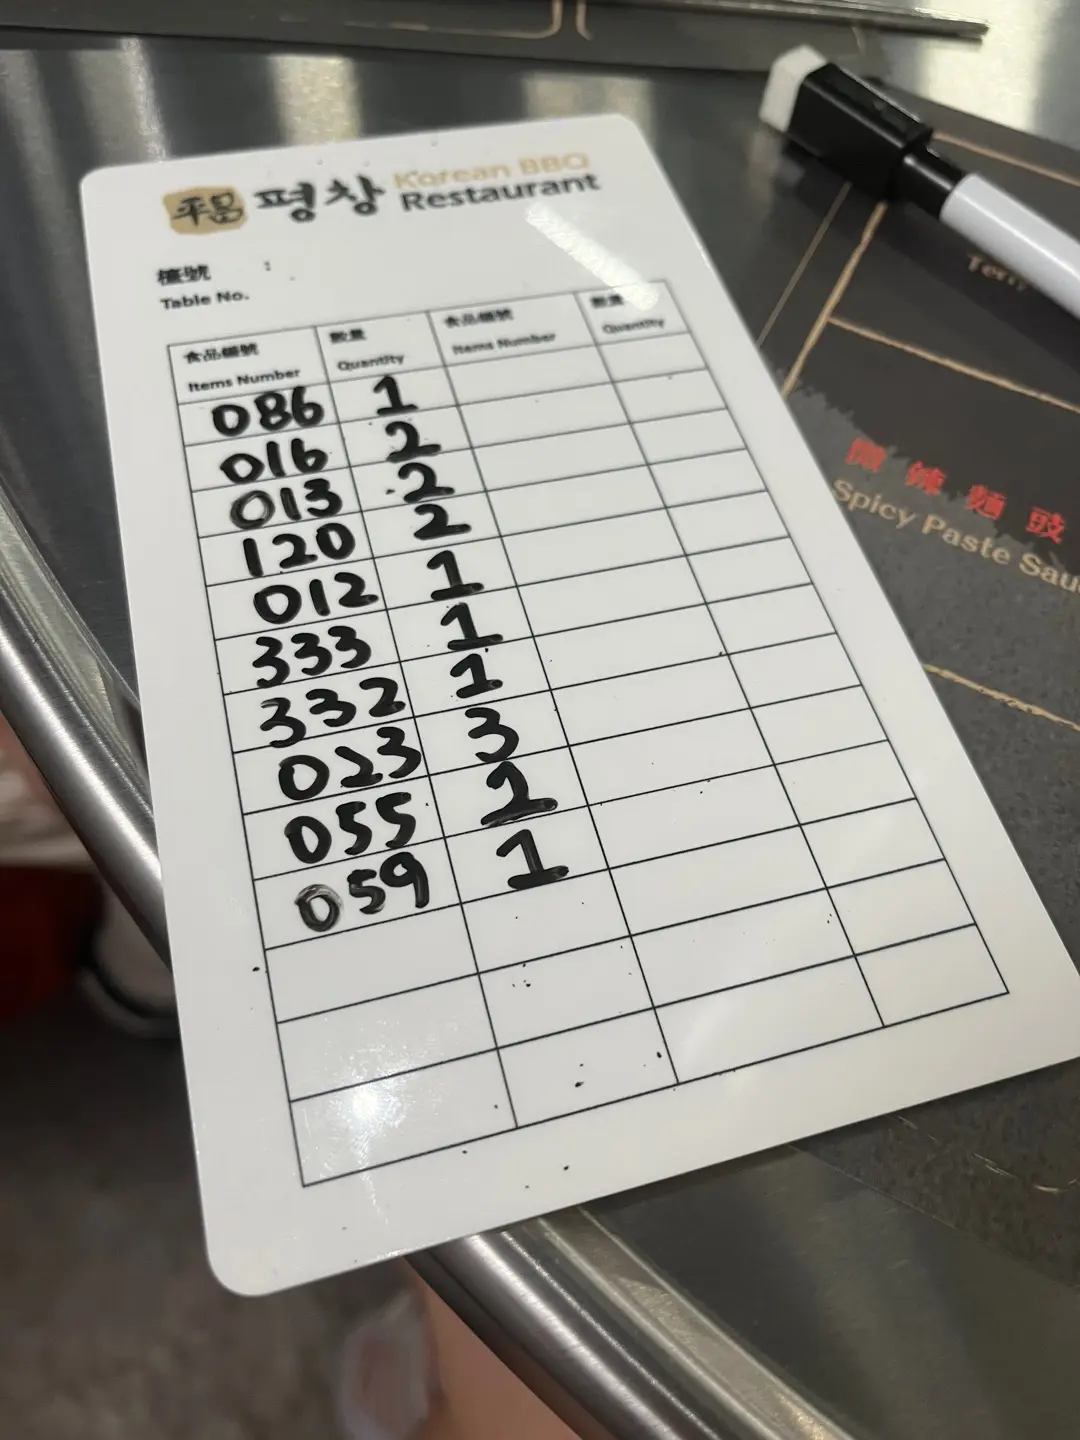 平昌 평창 Korean BBQ
Restaurant
檯號 :
Table No.
食品編號 數量 食品編號 數量
Items Number Quantity Items Number Quantity
086 1
016 2
013 2
120 2
012 1
333 1
332 1
023 3
055 2
059 1
微辣麵豉
Spicy Paste Sau